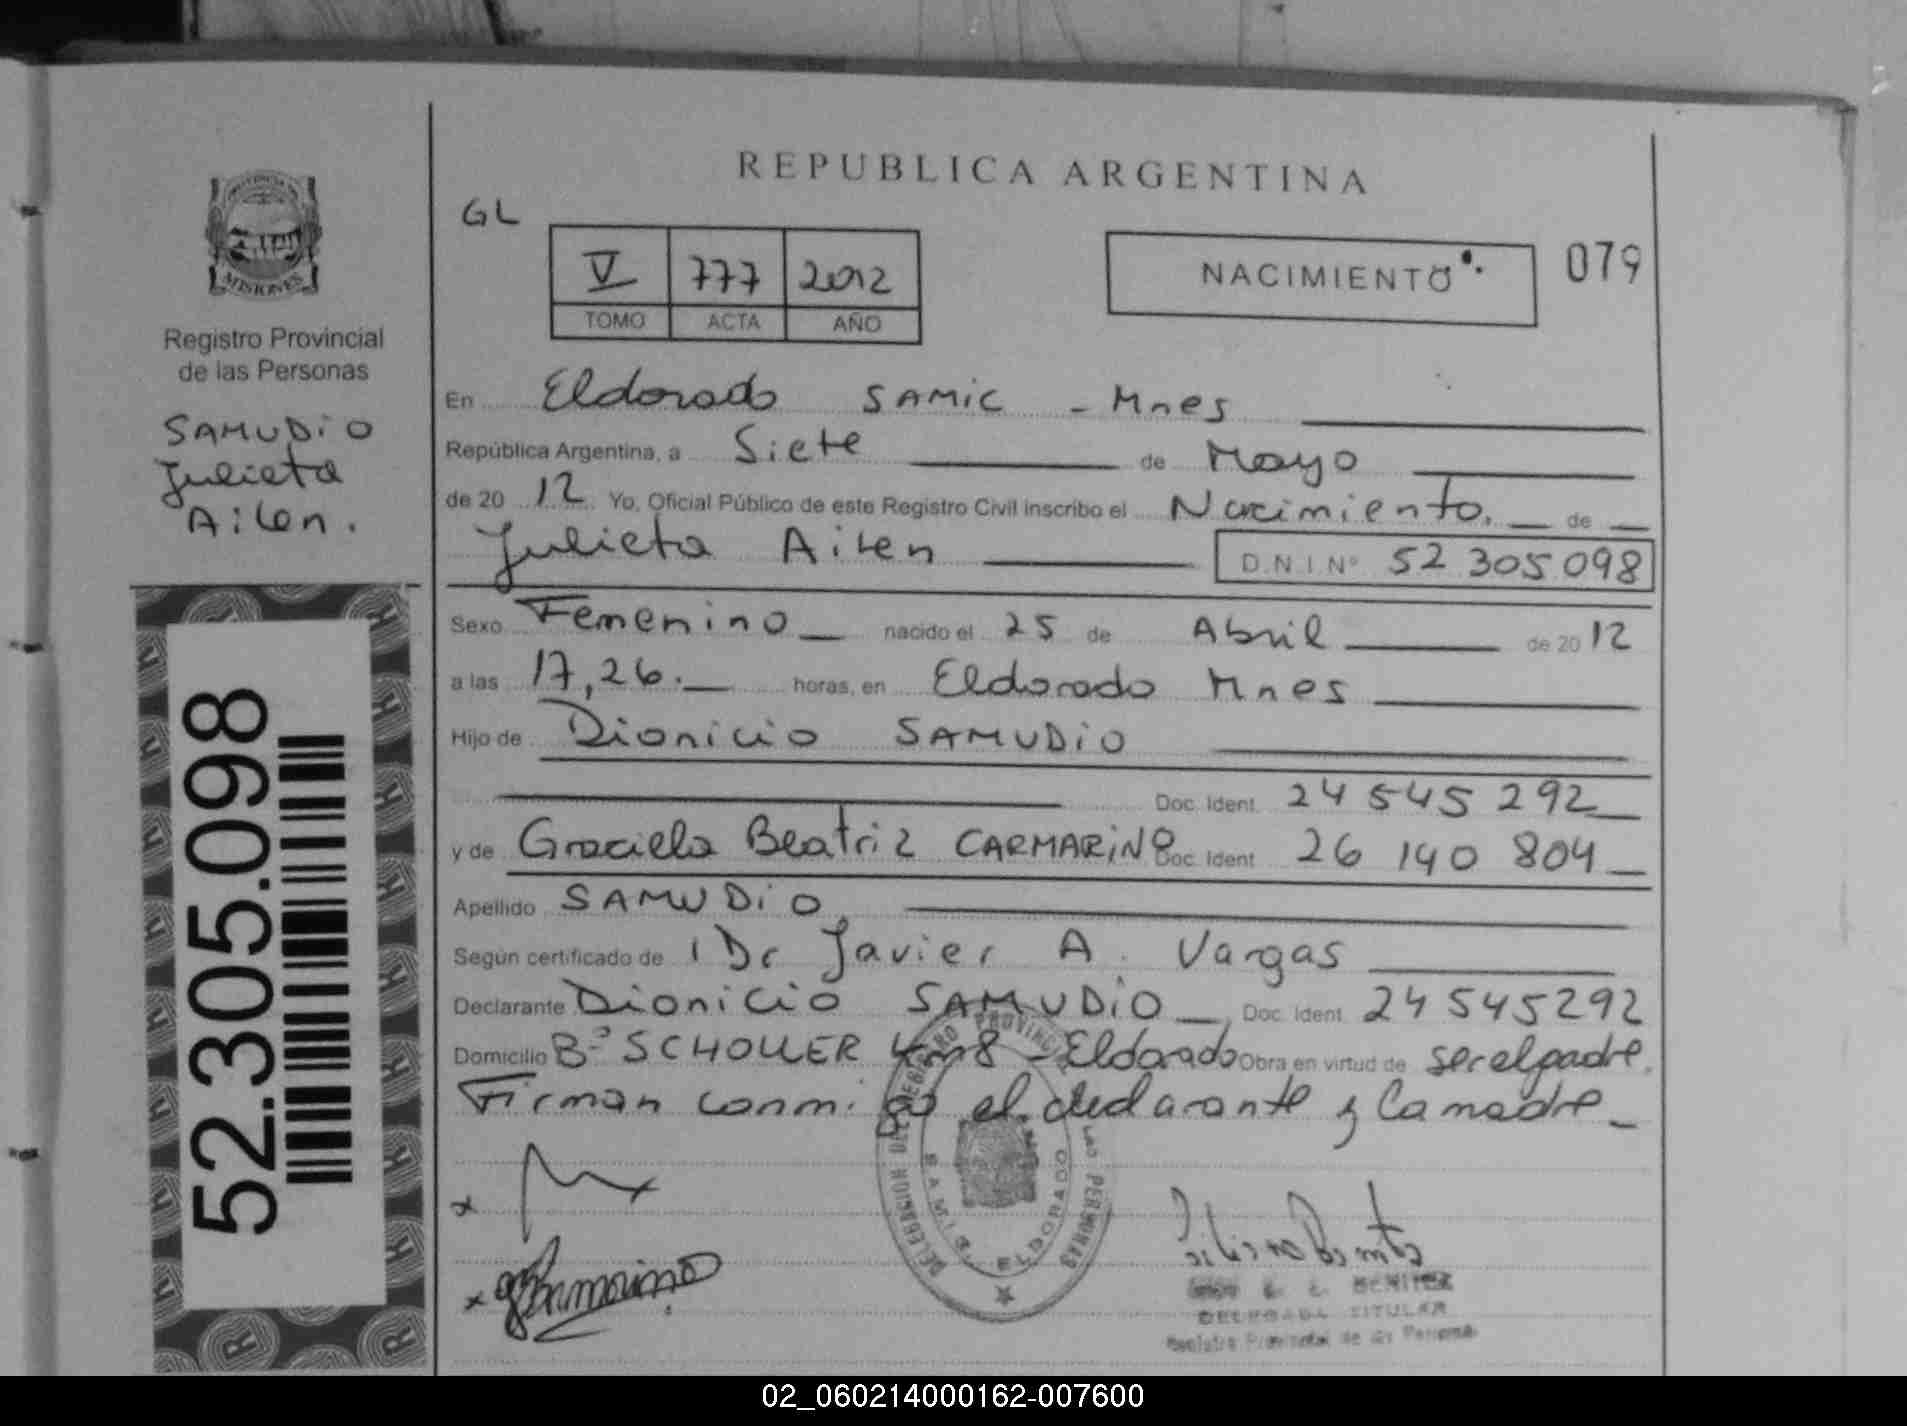 REPUBLICA ARGENTINA
PROVINCIA DE
MISIONES
Registro Provincial
de las Personas
SAMUDIO
Julieta
Ailen.
52.305.098
GL
V 777 2012
TOMO ACTA AÑO
NACIMIENTO
079
En Eldorado SAMIC - Mnes
República Argentina, a Siete de Mayo
de 20 12 Yo, Oficial Público de este Registro Civil inscribo el Nacimiento. de
Julieta Ailen D.N.I.Nº 52 305 098
Sexo Femenino nacido el 25 de Abril de 20 12
a las 17,26. horas, en Eldorado Mnes
Hijo de Dionicio SAMUDIO
Doc. Ident. 24 545 292
y de Graciela Beatriz CARMARINO Doc. Ident. 26 140 804
Apellido SAMUDIO
Según certificado de Dr Javier A. Vargas
Declarante Dionicio SAMUDIO Doc. Ident. 24545292
Domicilio Bº SCHOLLER Km8 - Eldorado Obra en virtud de ser el padre.
Firman conmigo el declarante y la madre
ELDORADO
BENITEZ
DELEGADA TITULAR
Registro Provincial de las Personas
02_060214000162-007600